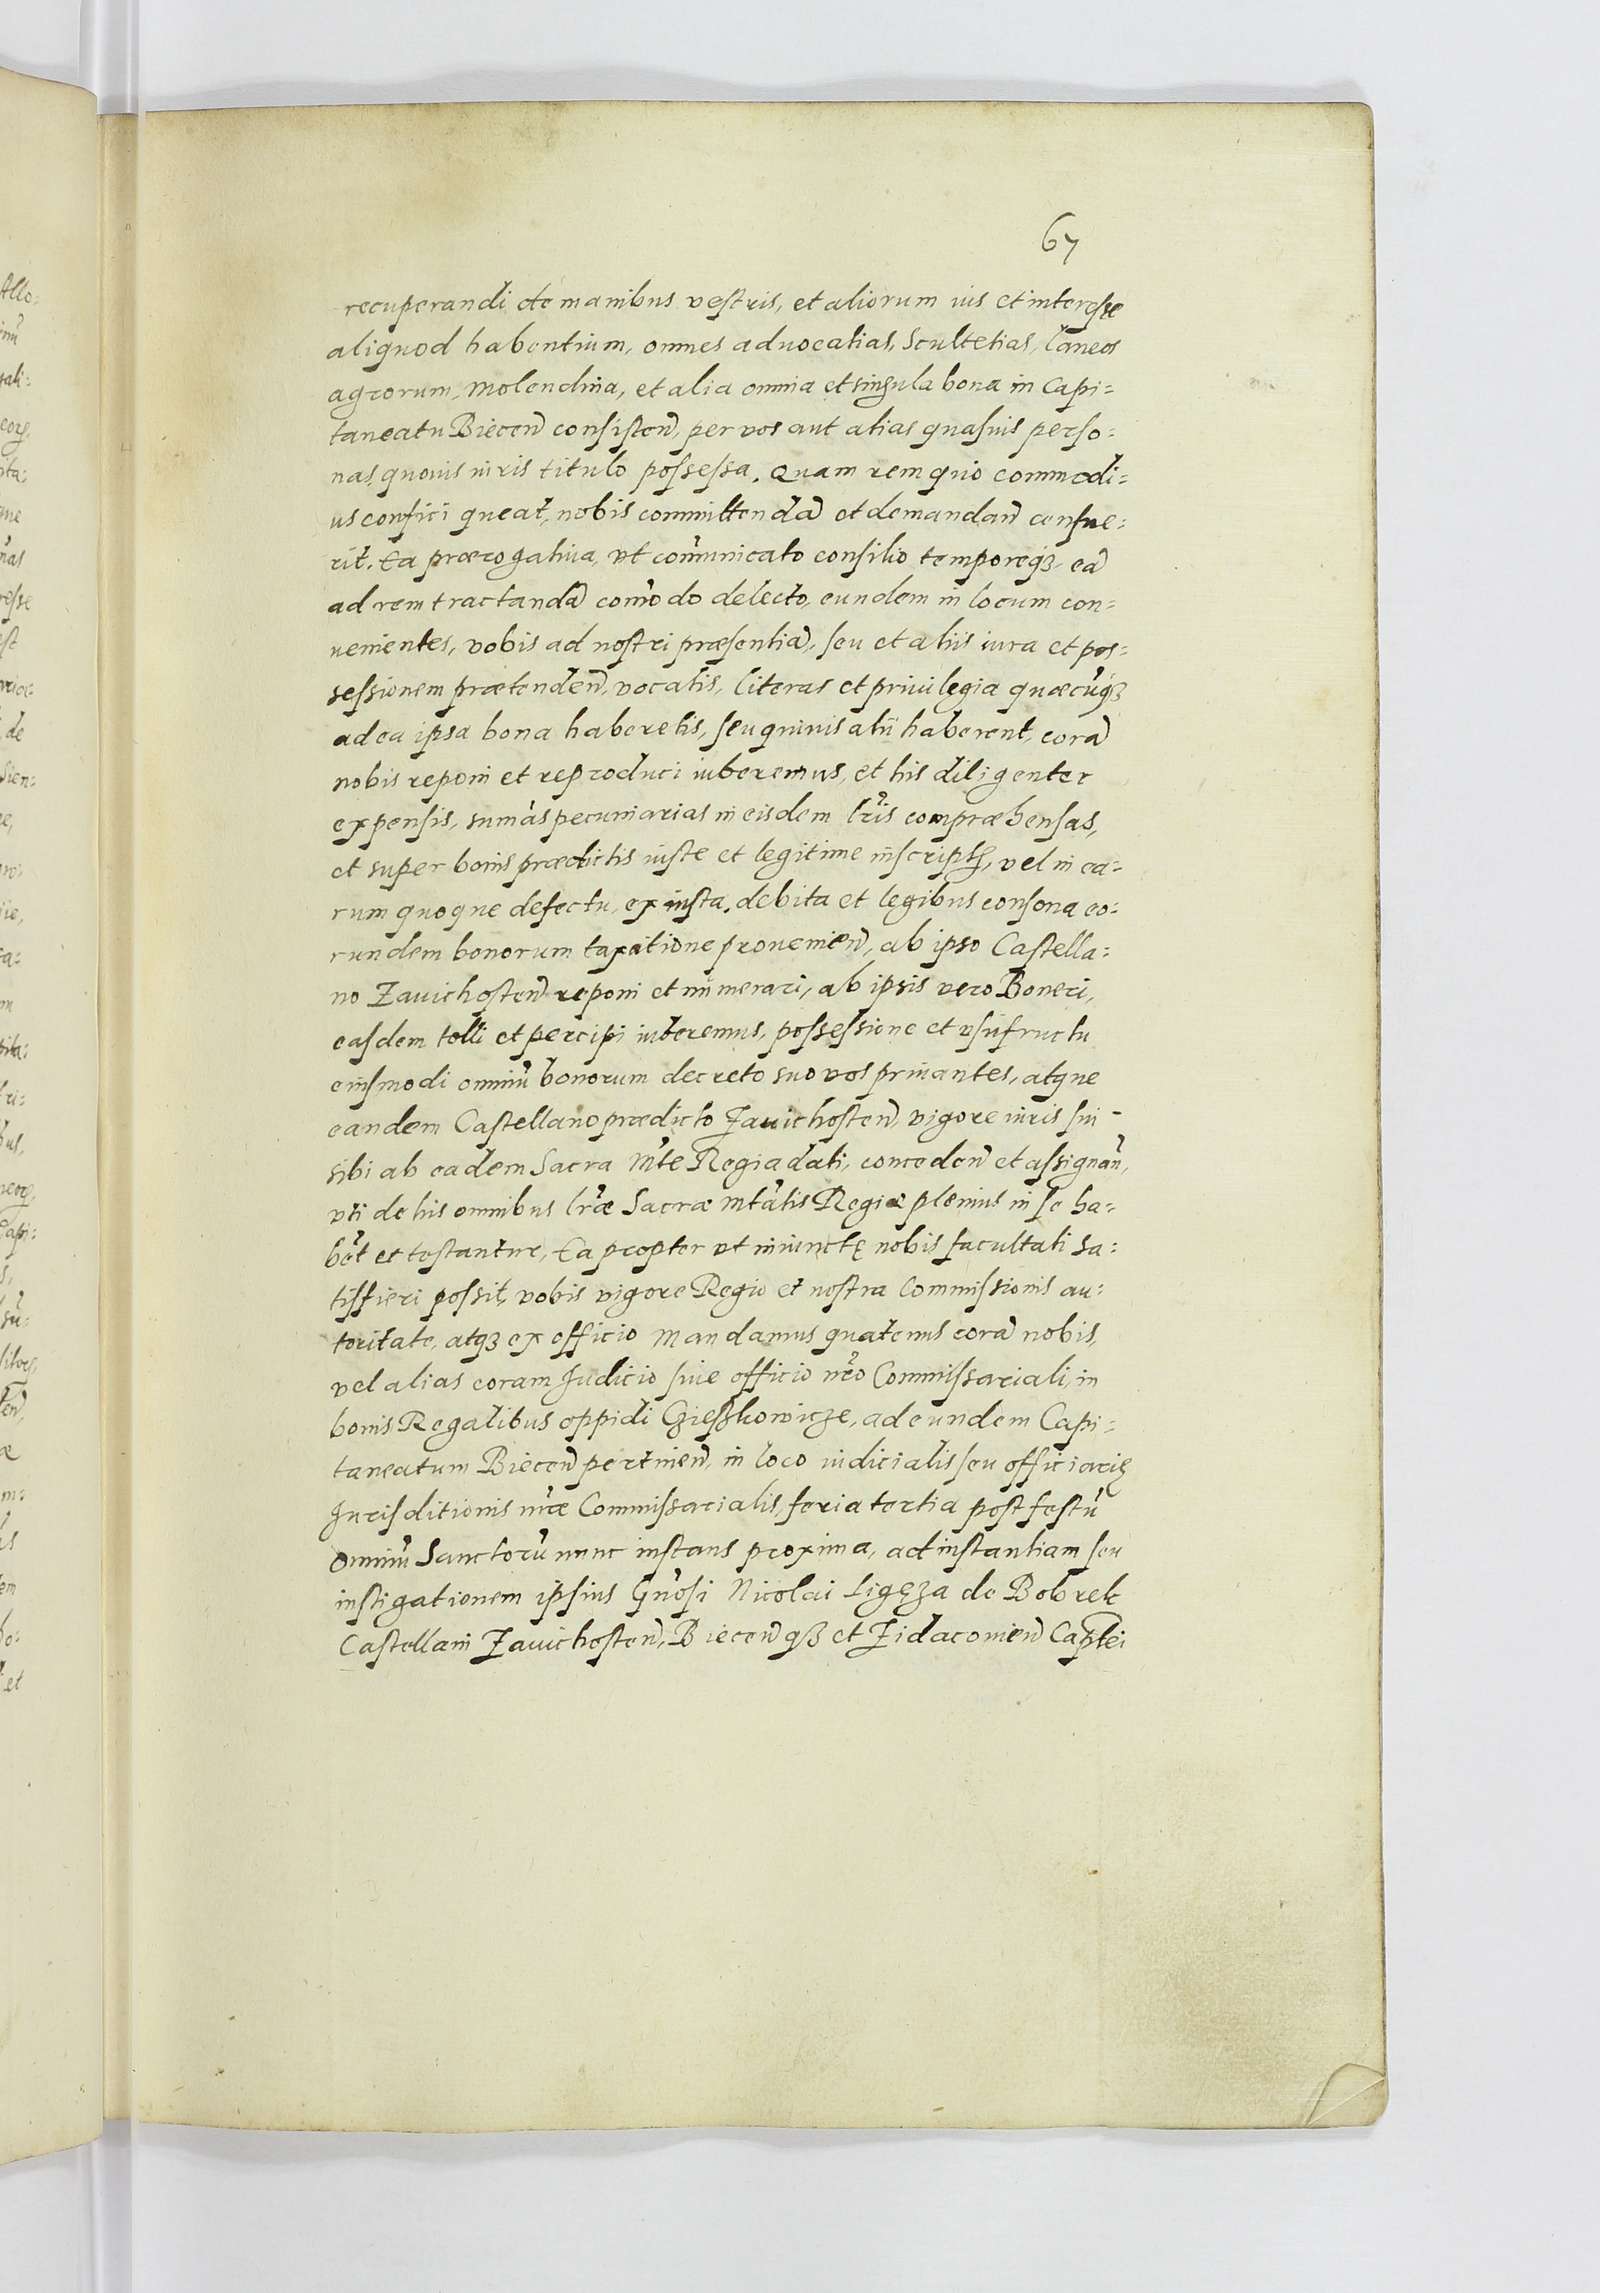 67
recuperandi de manibus vestris, et aliorum ius et interesse
aliquod habentium, omnes aduocatias, Scultetias, laneos
agrorum, Molendina, et alia omnia et singula bona in Capi=
taneatu Biecen̄ consisten̄, per vos aut alias quasuis perso=
nas, quouis iuris titulo possessa. Quam rem quo commodi=
us confici queat, nobis committendā et demandan̄ censue=
rit. Ea prærogatiua, vt com̄unicato consilio temporeqȝ eā
ad rem tractandā com̄odo delecto, eundem in locum con=
uenientes, vobis ad nostri præsentiā, seu et aliis iura et pos=
sessionem prætenden̄, vocatis, literas et priuilegia quæcūqȝ
ad ea ipsa bona haberetis, seu quiuis alii haberent, corā
nobis reponi et reproduci iuberemus, et his diligenter
expensis, sum̄as pecuniarias in eisdem lr̄is compræhensas,
et super bonis prædictis iuste et legitime inscriptę, vel in ea=
rum quoque defectu, ex iusta, debita et legibus consona eo=
rundem bonorum taxatione prouenien̄, ab ipso Castella=
no Zauichosten̄ reponi et numerari, ab ipsis vero Boneri,
easdem tolli et percipi iuberemus, possessione et vsufructu
eiusmodi omniū bonorum decreto suo vos priuantes, atque
eandem Castellano prædicto Zauichosten̄, vigore iuris sui
sibi ab eadem Sacra Mt̄e Regia dati, conceden̄ et assignan̄,
vti de his omnibus lr̄æ Sacræ Mtātis Regiæ plenius in se ha=
bēt et testantur, Ea propter vt iniunctę nobis facultati sa=
tisfieri possit, vobis vigore Regio et nostra Commissionis au=
toritate, atqȝ ex officio Mandamus quatenus corā nobis,
vel alias coram Judicio siue officio nr̄o Commissariali, in
bonis Regalibus oppidi Czieszkowicze, ad eundem Capi=
taneatum Biecen̄ pertinen̄, in loco iudicialis seu officiarię
Jurisditionis nr̄æ Commissarialis, feria tertia post festū
Omniū Sanctorū nunc instans proxima, ad instantiam seu
instigationem ipsius Gn̄osi Nicolai Ligęza de Bobrek
Castellani Zauichosten̄, Biecen̄qȝ et Zidaconien̄ Capt̄ei